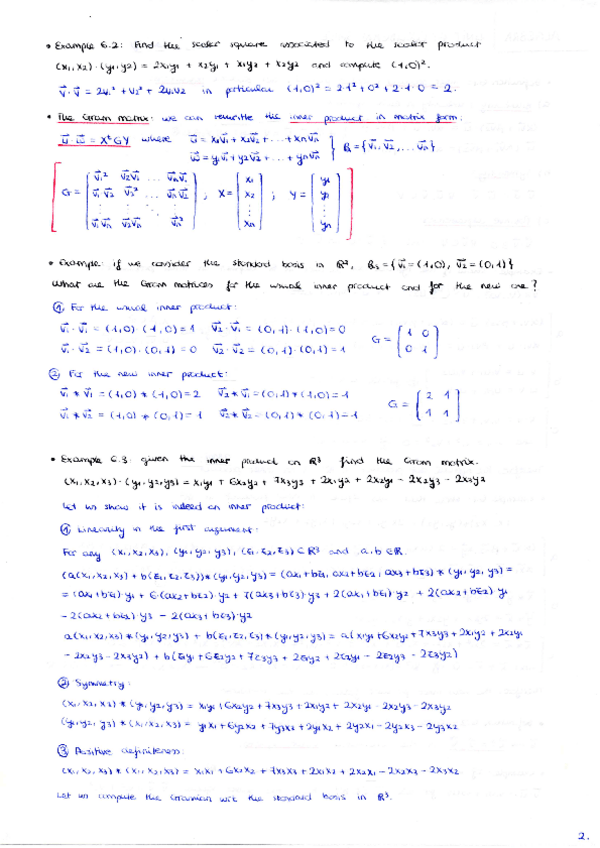 • Example 6.2: Find the scalar square associated to the scalar product
(x₁,x₂)·(y₁,y₂) = 2x₁y₁ + x₂y₁ + x₁y₂ + x₂y₂ and compute (1,0)².
v⃗·v⃗ = 2v₁² + v₂² + 2v₁v₂ in particular (1,0)² = 2·1² + 0² + 2·1·0 = 2.
• The Gram matrix: we can rewrite the inner product in matrix form:
u⃗·w⃗ = XᵗGY where u⃗ = x₁v⃗₁ + x₂v⃗₂ + ... + xₙv⃗ₙ
w⃗ = y₁v⃗₁ + y₂v⃗₂ + ... + yₙv⃗ₙ } B = {v⃗₁, v⃗₂, ... v⃗ₙ}
v⃗₁² v⃗₂v⃗₁ ... v⃗ₙv⃗₁ x₁ y₁
G = v⃗₁v⃗₂ v⃗₂² ... v⃗ₙv⃗₂ ; X = x₂ ; Y = y₂
⋮ ⋮ ⋱ ⋮ ⋮ ⋮
v⃗₁v⃗ₙ v⃗₂v⃗ₙ v⃗ₙ² xₙ yₙ
• Example: if we consider the standard basis in R², Bs = {v⃗₁ = (1,0), v⃗₂ = (0,1)}
What are the Gram matrices for the usual inner product and for the new one?
① For the usual inner product:
v⃗₁·v⃗₁ = (1,0)·(1,0) = 1 v⃗₂·v⃗₁ = (0,1)·(1,0) = 0 G = (1 0
v⃗₁·v⃗₂ = (1,0)·(0,1) = 0 v⃗₂·v⃗₂ = (0,1)·(0,1) = 1 0 1)
② For the new inner product:
v⃗₁*v⃗₁ = (1,0)*(1,0) = 2 v⃗₂*v⃗₁ = (0,1)*(1,0) = 1 G = (2 1
v⃗₁*v⃗₂ = (1,0)*(0,1) = 1 v⃗₂*v⃗₂ = (0,1)*(0,1) = 1 1 1)
• Example 6.3: given the inner product on R³ find the Gram matrix.
(x₁,x₂,x₃)·(y₁,y₂,y₃) = x₁y₁ + 6x₂y₂ + 7x₃y₃ + 2x₁y₂ + 2x₂y₁ - 2x₂y₃ - 2x₃y₂
Let us show it is indeed an inner product:
① Linearity in the first argument:
For any (x₁,x₂,x₃), (y₁,y₂,y₃), (z₁,z₂,z₃) ∈ R³ and a,b ∈ R.
(a(x₁,x₂,x₃) + b(z₁,z₂,z₃))*(y₁,y₂,y₃) = (ax₁+bz₁, ax₂+bz₂, ax₃+bz₃)*(y₁,y₂,y₃) =
= (ax₁+bz₁)·y₁ + 6·(ax₂+bz₂)·y₂ + 7(ax₃+bz₃)·y₃ + 2(ax₁+bz₁)·y₂ + 2(ax₂+bz₂)·y₁
- 2(ax₂+bz₂)·y₃ - 2(ax₃+bz₃)·y₂
a(x₁,x₂,x₃)*(y₁,y₂,y₃) + b(z₁,z₂,z₃)*(y₁,y₂,y₃) = a(x₁y₁+6x₂y₂+7x₃y₃+2x₁y₂+2x₂y₁
- 2x₂y₃ - 2x₃y₂) + b(z₁y₁+6z₂y₂+7z₃y₃+2z₁y₂+2z₂y₁ - 2z₂y₃ - 2z₃y₂)
② Symmetry:
(x₁,x₂,x₃)*(y₁,y₂,y₃) = x₁y₁+6x₂y₂+7x₃y₃+2x₁y₂+2x₂y₁-2x₂y₃-2x₃y₂
(y₁,y₂,y₃)*(x₁,x₂,x₃) = y₁x₁+6y₂x₂+7y₃x₃+2y₁x₂+2y₂x₁-2y₂x₃-2y₃x₂
③ Positive definiteness:
(x₁,x₂,x₃)*(x₁,x₂,x₃) = x₁x₁+6x₂x₂+7x₃x₃+2x₁x₂+2x₂x₁-2x₂x₃-2x₃x₂
Let us compute the Gramian wrt the standard basis in R³.
2.